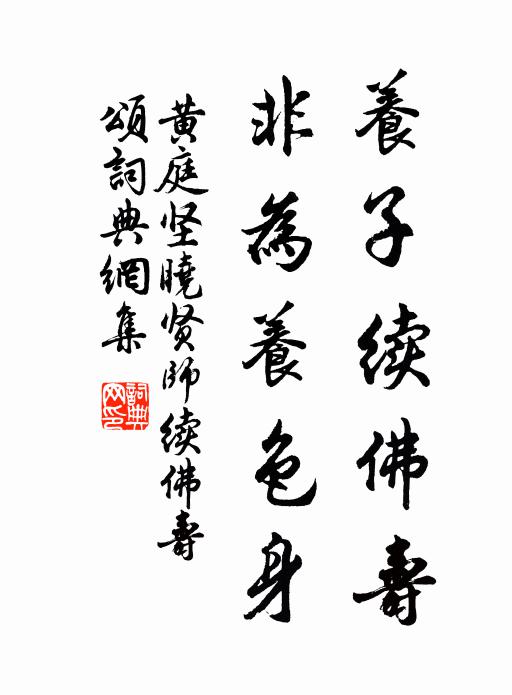 養子续佛壽
非為養色身
黄庭坚曉贤師续佛壽
頌詞典網集
詞典
网印